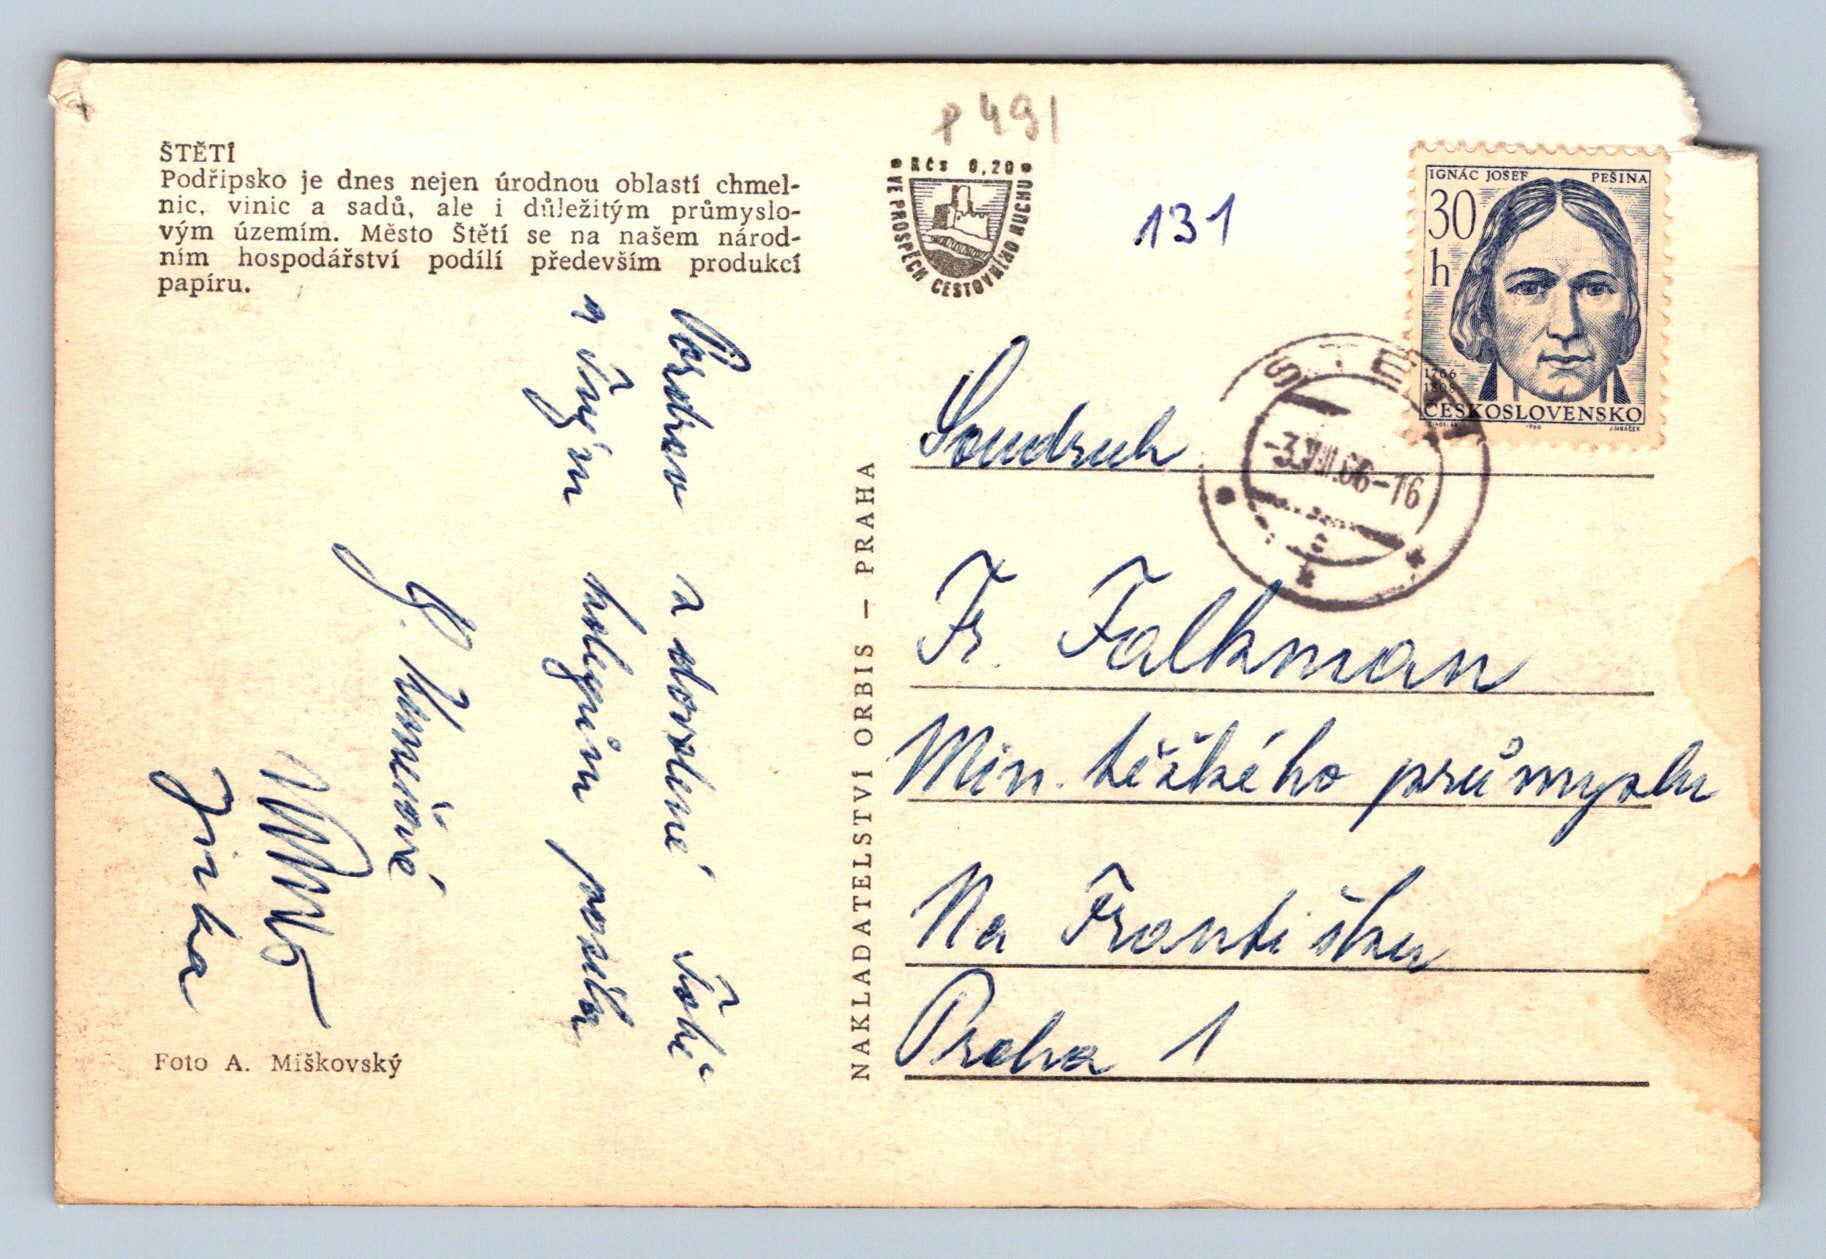 ŠTĚTÍ
Podřipsko je dnes nejen úrodnou oblastí chmel-
nic, vinic a sadů, ale i důležitým průmyslo-
vým územím. Město Štětí se na našem národ-
ním hospodářství podílí především produkcí
papíru.
Pozdrav z dovolené Tobě
a Tvým kolegům posílá
Jirka
Foto A. Míškovský
NAKLADATELSTVÍ ORBIS — PRAHA
P 491
Kčs 0,20
VE PROSPĚCH CESTOVNÍHO RUCHU
131
IGNÁC JOSEF PEŠINA
30
h
1766
1808
ČESKOSLOVENSKO
ŠTĚTÍ
-3.VIII.66-16
Soudruh
Fr. Falkman
Min. těžkého průmyslu
Na Františku
Praha 1